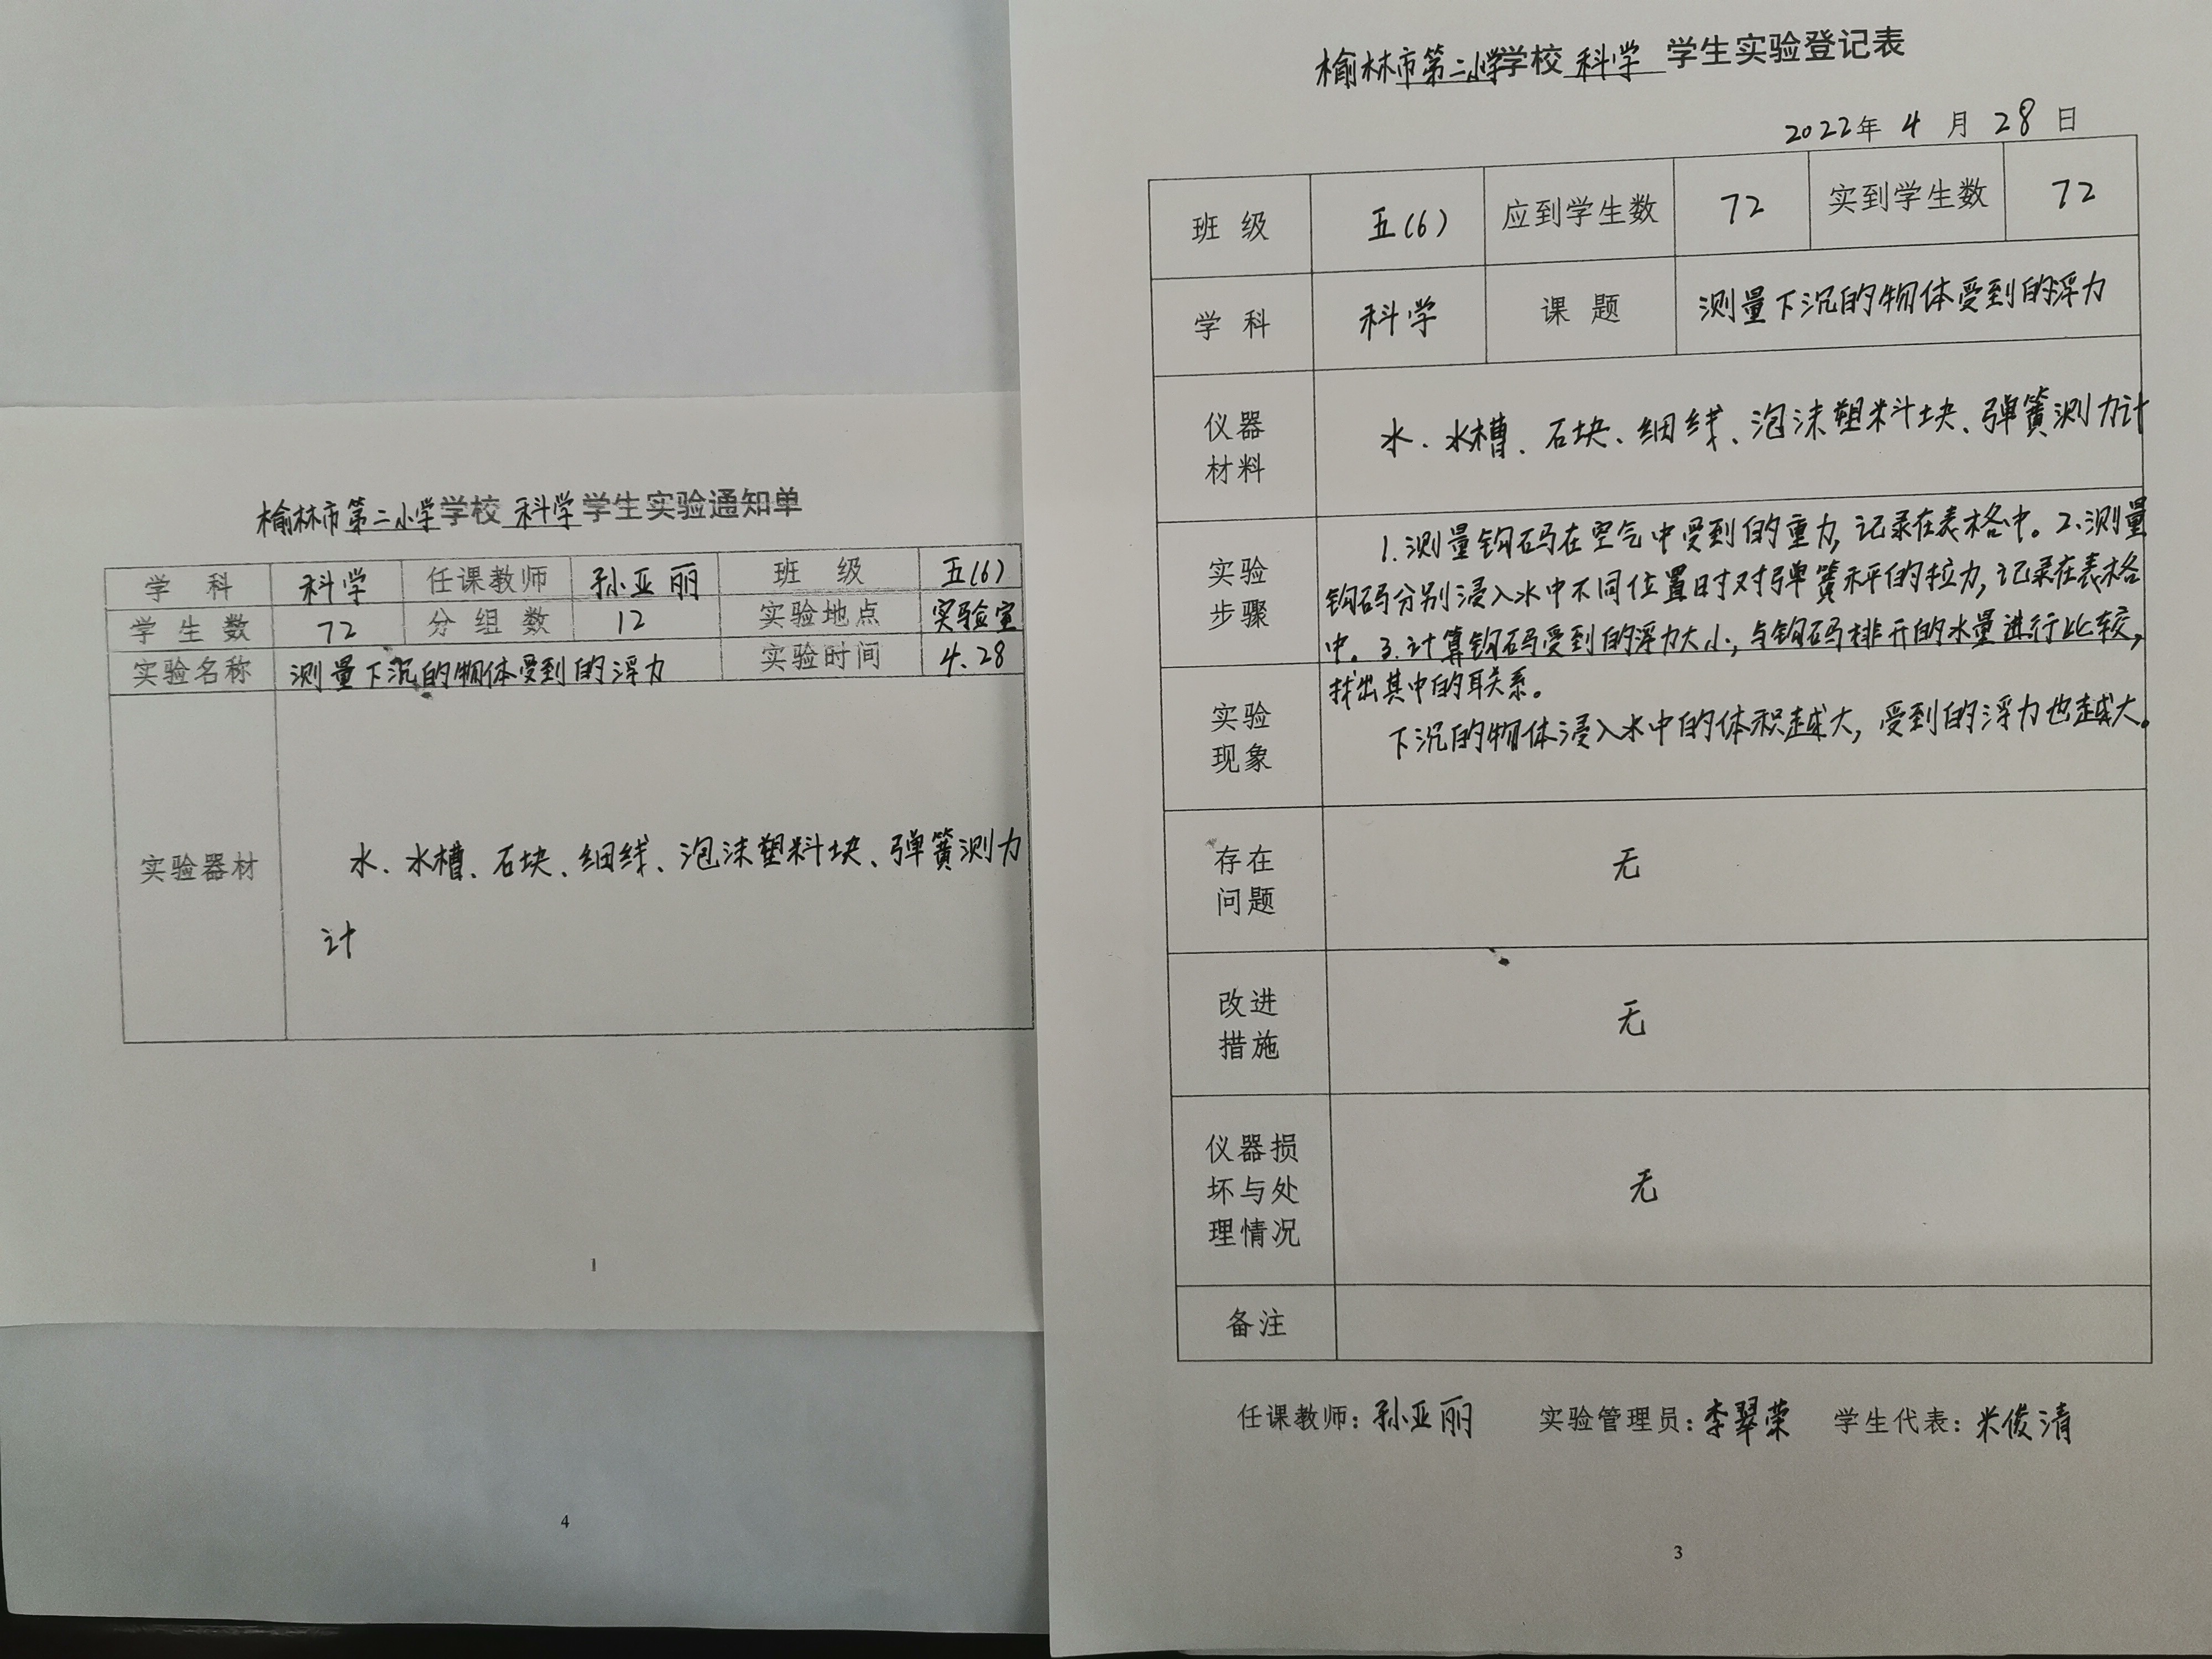 榆林市第二小学学校 科学 学生实验通知单
学 科 科学 任课教师 孙亚丽 班 级 五(6)
学 生 数 72 分 组 数 12 实验地点 实验室
实验名称 测量下沉的物体受到的浮力 实验时间 4.28
实验器材 水、水槽、石块、细线、泡沫塑料块、弹簧测力
计
1
4
榆林市第二小学学校 科学 学生实验登记表
2022年 4 月 28 日
班 级 五(6) 应到学生数 72 实到学生数 72
学 科 科学 课 题 测量下沉的物体受到的浮力
仪器
材料
水、水槽、石块、细线、泡沫塑料块、弹簧测力计
实验
步骤
1.测量钩码在空气中受到的重力,记录在表格中。2.测量
钩码分别浸入水中不同位置时对弹簧秤的拉力,记录在表格
中。3.计算钩码受到的浮力大小,与钩码排开的水量进行比较,
找出其中的联系。
实验
现象
下沉的物体浸入水中的体积越大,受到的浮力也越大。
存在
问题
无
改进
措施
无
仪器损
坏与处
理情况
无
备注
任课教师:孙亚丽 实验管理员:李翠荣 学生代表:米俊清
3